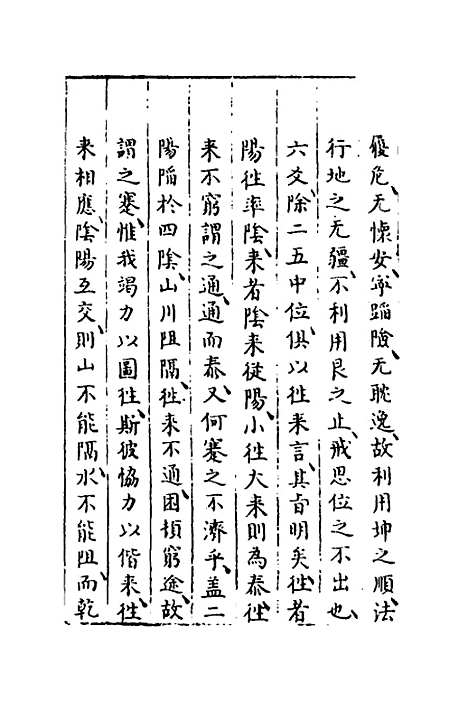 履危、无懐安、寧蹈險、无耽逸、故利用坤之順、法
行地之无疆、不利用艮之止、戒思位之不出也、
六爻、除二五中位、俱以徃来言、其旨明矣、徃者
陽徃率陰、来者陰来從陽、小徃大来則為泰、徃
来不窮謂之通、通而泰、又何蹇之不濟乎、盖二
陽陷於四陰、山川阻隔、徃来不通、困頓窮途、故
謂之蹇、惟我竭力以圖徃、斯彼恊力以偕来、徃
来相應、陰陽互交、則山不能隔、水不能阻、而乾